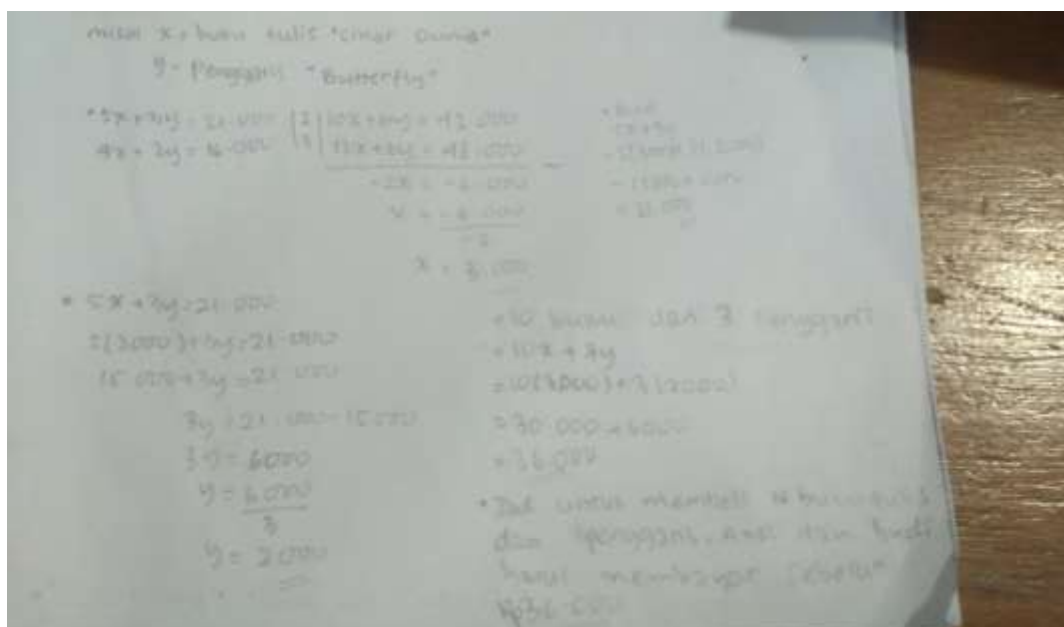 misal x = buku tulis "Sinar Dunia"
y = Penggaris "Butterfly"
* 5x + 3y = 21.000 |2| 10x + 6y = 42.000
4x + 2y = 16.000 |3| 12x + 6y = 48.000
-2x = -6.000
x = -6.000
-2
x = 3.000
5x + 3y
= 21.000
* 5x + 3y = 21.000
5(3000) + 3y = 21.000
15.000 + 3y = 21.000
3y = 21.000 - 15.000
3y = 6000
y = 6000
3
y = 2000
10 buku dan 3 penggaris
= 10x + 3y
= 10(3.000) + 3(2000)
= 30.000 + 6000
= 36.000
* Jadi untuk membeli buku tulis
dan penggaris, Andi dan Budi
harus membayar sebesar
Rp36.000